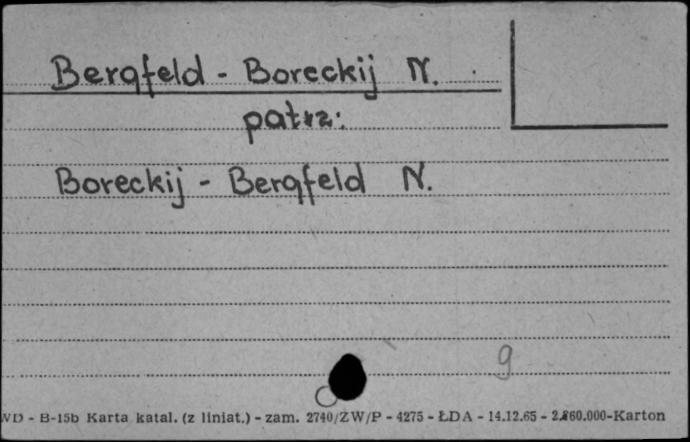 Bergfeld - Boreckij N.
patrz:
Boreckij - Bergfeld N.
9
WD - B-15b Karta katal. (z liniat.) - zam. 2740/ZW/P - 4275 - ŁDA - 14.12.65 - 2.860.000-Karton